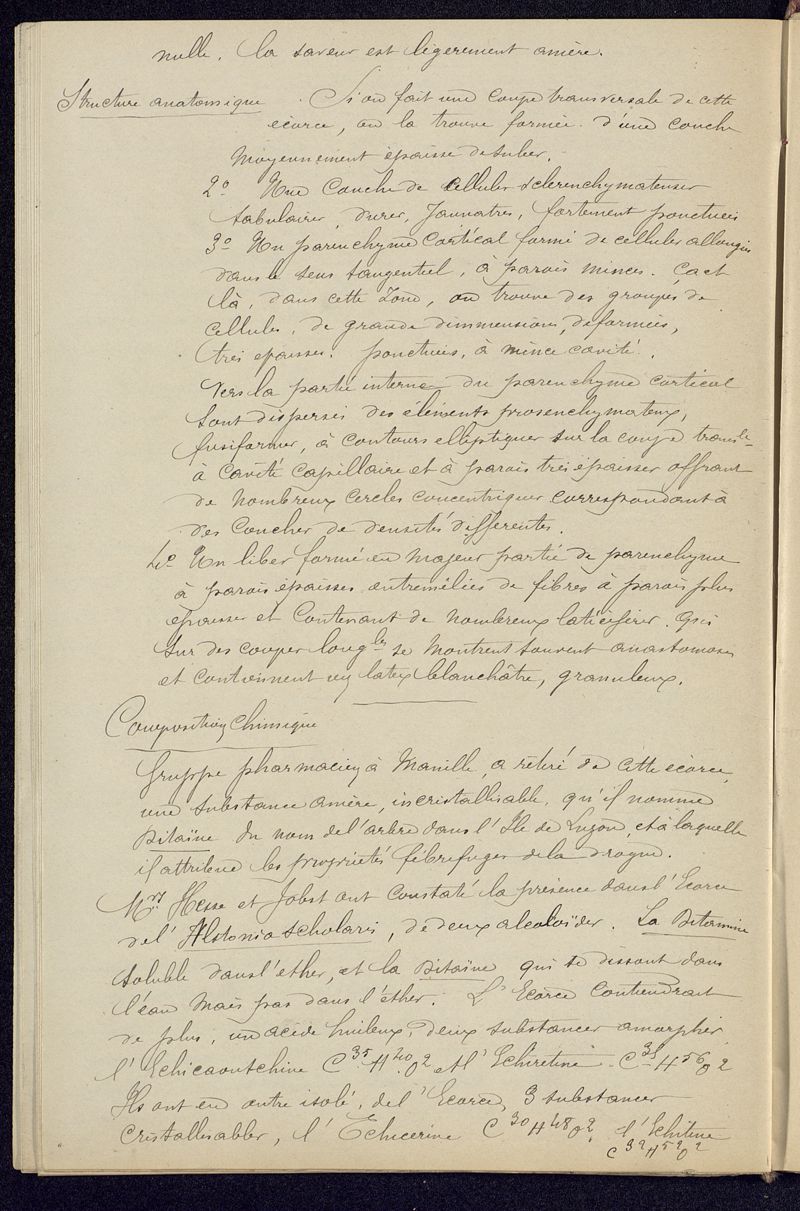 nulle. la saveur est légerement amère.
Structure anatomique. Si on fait une coupe transversale de cette
écorce, on la trouve formée d'une couche
moyennement épaisse de suber.
2° Une couche de cellules sclerenchymateuses
tabulaires, dures, jaunatres, fortement ponctuées
3° Un parenchyme cortical formé de cellules allongées
dans le sens tangentiel, à parois minces. Ça et
là, dans cette zone, on trouve des groupes de
cellules, de grande dimmensions, deformées,
très epaisses. ponctuées, à mince cavité.
Vers la partie interne du parenchyme cortical
sont dispersés des éléments prosenchymateux,
fusiformes, à contours elliptiques sur la coupe transle
à cavité capillaire et à parois très épaisses offrant
de nombreux cercles concentriques correspondant à
des couches de densités differentes.
4° Un liber formé en majeur partie de parenchyme
à parois épaisses entremêlées de fibres à parois plus
épaisses et contenant de nombreux laticifères. qui
sur des coupes longles se montrent souvent anastomosés
et contiennent un latex blanchâtre, granuleux.
Composition chimique
Gruppe pharmacien à Manille, a retiré de cette écorce,
une substance amère, incristallisable, qu'il nomme
Ditaïne du nom de l'arbre dans l'Ile de Luçon, et à laquelle
il attribue les propriétés fébrefuges de la drogue.
Mrs Hesse et Jobst ont constaté la présence dans l'Ecorce
de l'Alstonia scholaris, de deux alcaloïdes. La Ditamine
soluble dans l'éther, et la Ditaïne qui se dissout dans
l'eau mais pas dans l'éther. L'Ecorce contiendrait
de plus, un acide huileux, deux substances amorphes
l'Echicaoutchine C35 H40 O2 et l'Echiretine C35 H56 O2
Ils ont en outre isolé, de l'Ecorce, 3 substances
cristallisables, l'Echicerine C30 H48 O2, l'Echitine
C32 H52 O2